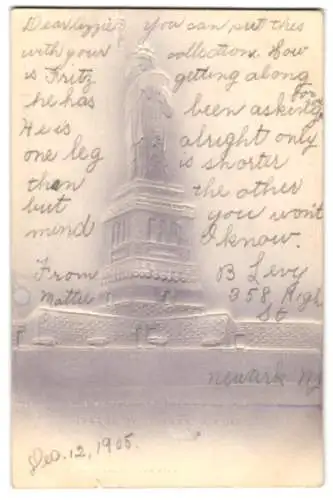 Dear Lizzie you can put this
with your collection. How
is Fritz getting along
he has been asking for
He is alright only
one leg is shorter
then the other
but you won't
mind I know.
From B Levy
Mattie 358 High
St
Newark NJ
Dec. 12, 1905.